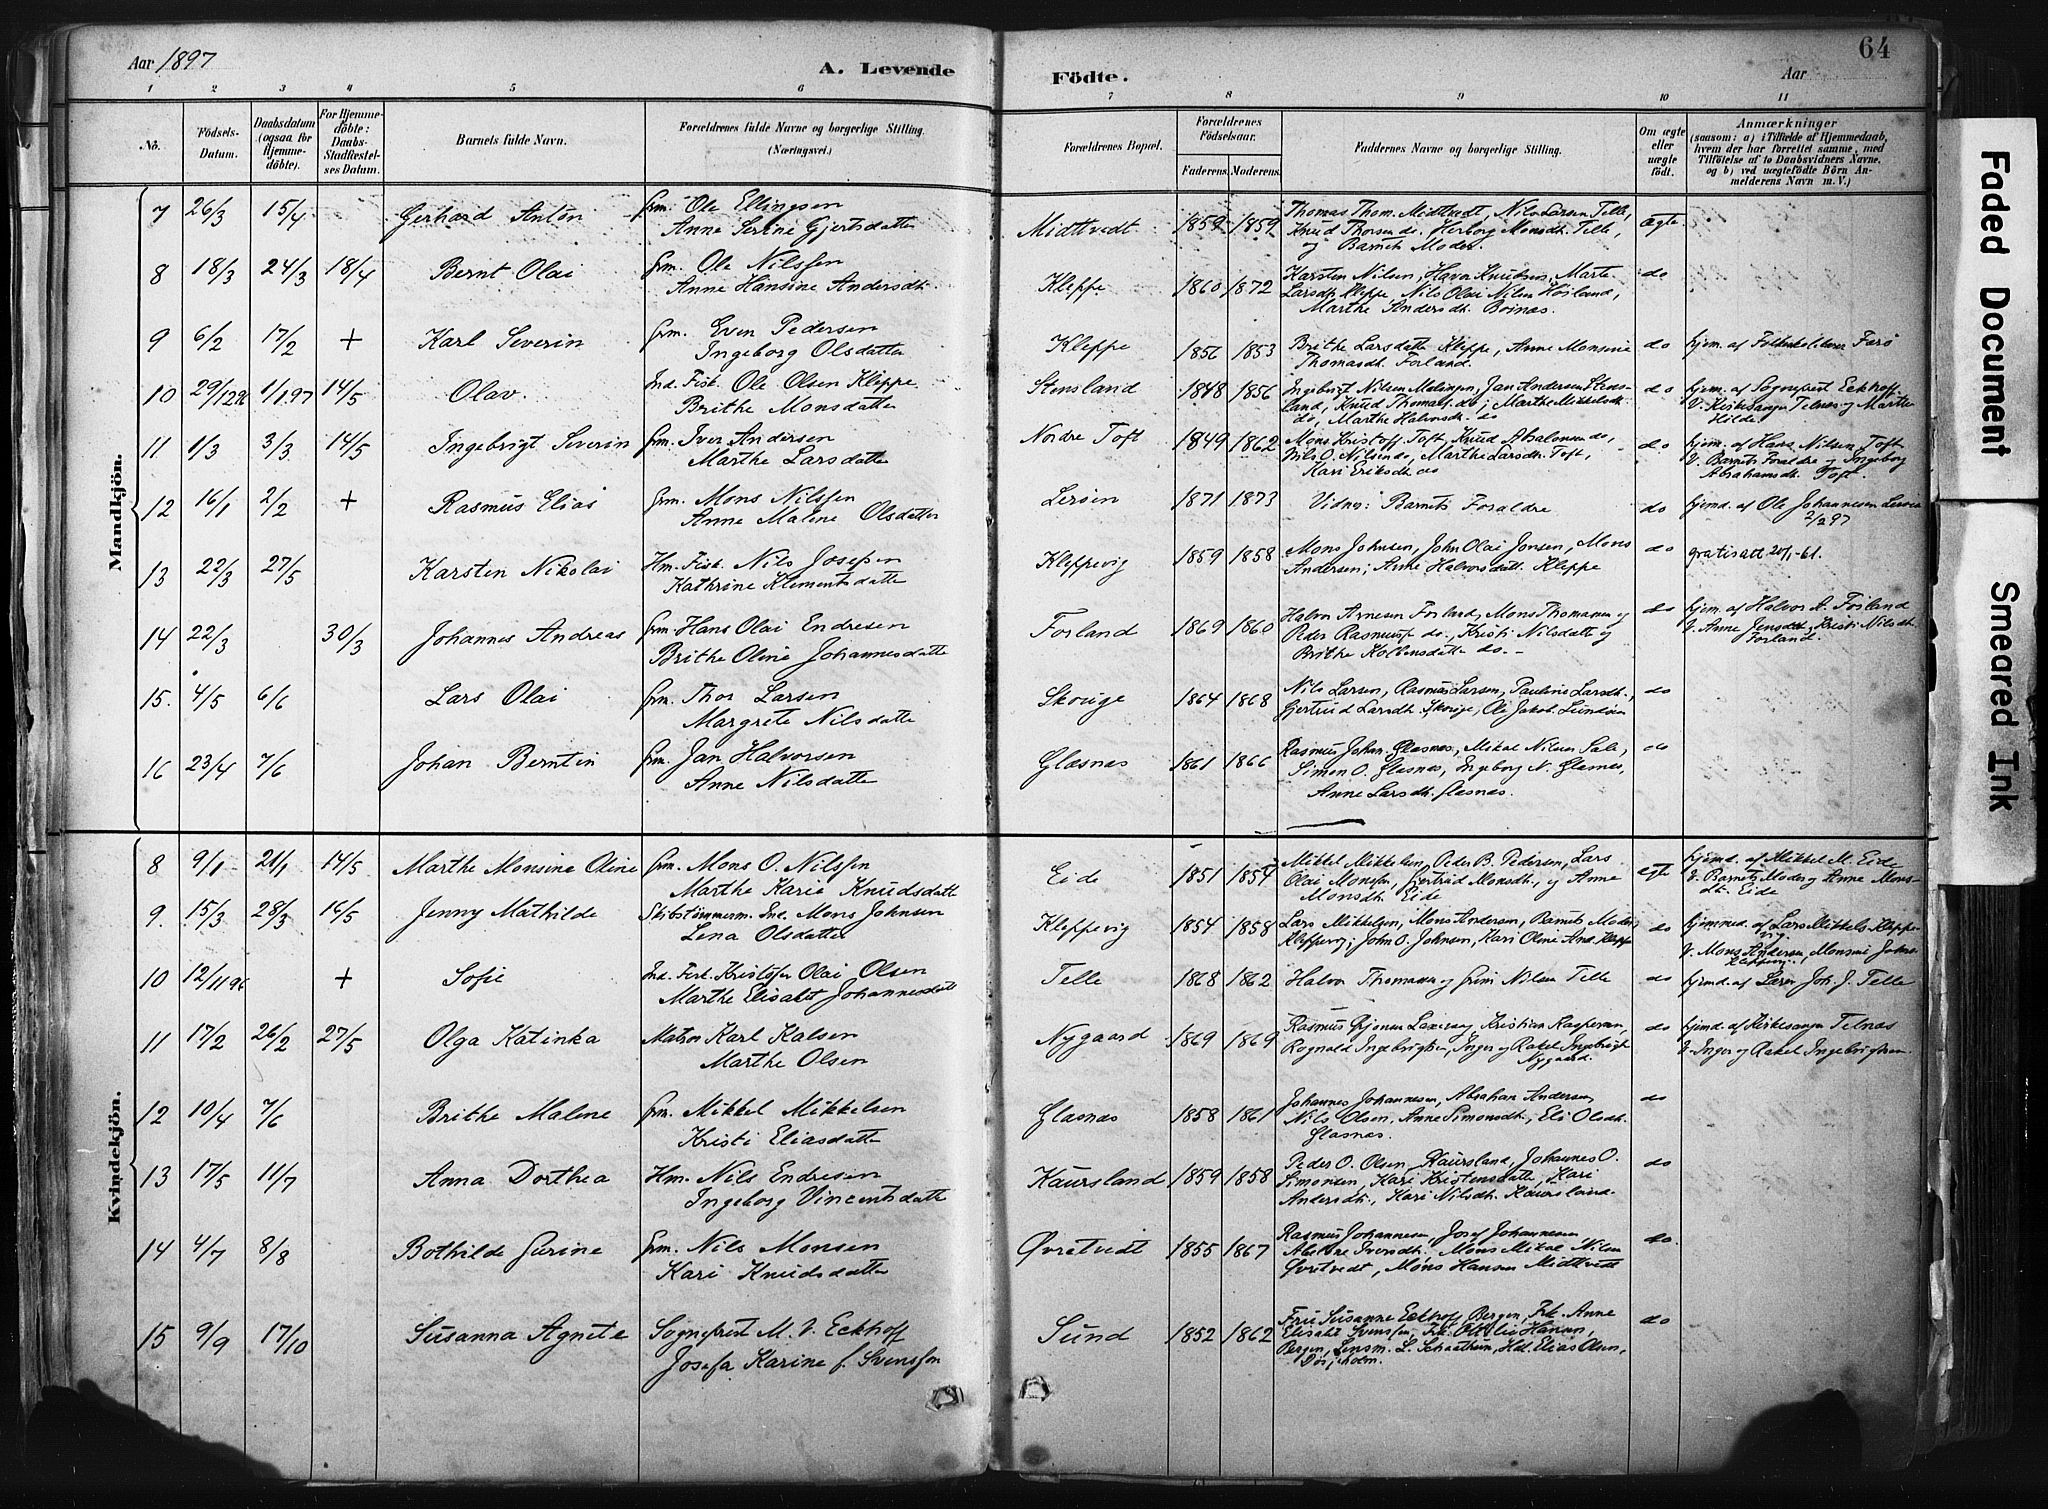 Aar 1897
A. Levende
Födte.
Aar
64
1 2 3 4 5 6 7 8 9 10 11
No.
Födsels-Datum.
Daabsdatum (ogsaa for Hjemme-döbte).
For Hjemme-döbte: Daabs-Stadfæstel-ses Datum.
Barnets fulde Navn.
Forældrenes fulde Navne og borgerlige Stilling. (Næringsvei.)
Forældrenes Bopæl.
Forældrenes Födselsaar.
Faderens. Moderens.
Faddernes Navne og borgerlige Stilling.
Om ægte eller uægte födt.
Anmærkninger
(saasom: a) i Tilfælde af Hjemmedaab, hvem der har forrettet samme, med Tilföielse af to Daabsvidners Navne, og b) ved uægtefödte Börn An-melderens Navn m. V.)
Mandkjön.
7 26/3 15/4 Gerhard Anton grm. Ole Ellingsen Midttvedt 1859 1859 Thomas Thom. Midttvedt, Nils Larsen Telle, Ægte
Anne Serine Gjertsdatter Knud Thorsen do. Herborg Monsdt. Telle,
og Barnets Moder.
8 18/3 24/3 18/4 Bernt Olai grm. Ole Nilssen Kleppe 1860 1872 Karsten Nilsen, Havor Knutsen, Marte do
Anne Hansine Andersdt. Larsdt. Kleppe, Nils Olai Nilsen Höiland,
Marthe Andersdt.
9 6/2 17/2 + Karl Severin grm. Even Pedersen Kleppe 1856 1853 Brithe Larsdatter Kleppe, Anne Monsine do hjem. af
Ingeborg Olsdatter Thomasdt. Forland.
10 29/12 96 1/1 97 14/5 Olav. Ind. Fisk. Ole Olsen Kleppe Stensland 1848 1856 Ingebrigt Nilsen Malingen, Jan Andersen Stens- do hjem. af Sogneprest Eckhoff
Brithe Monsdatter land, Knud Thomas. do; Marthe Mikkelsdt. V. Kirkesanger Telnes og Marthe
do, Marthe Halvorsdt. do Hilde.
11 1/3 3/3 14/5 Ingebrigt Severin grm. Iver Andersen Nordre Toft 1849 1862 Mons Kristoff. Toft, Knud Absalonsen do, do hjem. af Hans Nilsen Toft
Marthe Larsdatter Nils O. Nilsen do, Marthe Larsdt. Toft, V. Barnets Foraldre og Ingeborg
Kari Eriksdt. do Abrahamsdt. Toft.
12 16/1 2/2 + Rasmus Elias grm. Mons Nilssen Lerøen 1871 1873 Vidner: Barnets Foraldre do hjemd. af Ole Johannesen Lerøen
Anne Malene Olsdatter 2/2 97
13 22/3 27/5 Karsten Nikolai Hm. Fisk. Nils Josefsen Kleppevig 1859 1858 Mons Johnsen, John Olai Jonsen, Mons do gratisatt 20/1-61.
Kathrine Klementsdatter Andersen; Anne Halvorsdatt. Kleppe
14 22/3 30/3 Johannes Andreas grm. Hans Olai Endresen Forland 1869 1860 Halvor Arnesen Forland, Mons Thomassen og do hjem. af Halvor A. Forland
Brithe Oline Johannesdatter Peder Rasmus. do., Kristi Nilsdatter og V. Anne Jensdt., Kristi Nilsdt.
Brithe Kolbensdatter do. - Forland.
15. 4/5 6/6 Lars Olai grm. Thor Larsen Skouge 1864 1868 Nils Larsen, Rasmus Larsen, Pauline Larsdt., do
Margrete Nilsdatter Gjertrud Larsdt. Skouge, Ole Jakob.
16 23/4 7/6 Johan Berntin grm. Jan Halvorsen Glæsnæs 1861 1866 Rasmus Johan. Glæsnæs, Mikal Nilsen Sale, do
Anne Nilsdatter Simon O. Glæsnæs, Ingeborg N. Glæsnæs,
Anne Larsdt. Glæsnæs.
Kvindekjön.
8 9/1 21/1 14/5 Marthe Monsine Oline grm. Mons O. Nilssen Eide 1851 1854 Mikkel Mikkelsen, Peder B. Pedersen, Lars egte hjemd. af Mikkel M. Eide
Marthe Karie Knudsdatter Olai Monssen, Gjertrud Monsdt., og Anne V. Barnets Moder og Anne Mons-
Monsdt. Eide dt. Eide
9. 15/3 28/3 16/5 Jenny Mathilde Skibstømmerm. Ind. Mons Johnsen Kleppevig 1854 1858 Lars Mikkelsen, Mons Andersen, Barnets Moder do hjemmed. af Lars Mikkels. Kleppe-
Lena Olsdatter Kleppevig; John O. Johnsen, Kari Oline And. Kleppe vig
V. Mons Andersen, Monsine Johns.
Kleppevig.
10 12/11 96 + Sofie Ind. Fisk. Kristofer Olai Olsen Telle 1868 1862 Halvor Thomassen og Grim Nilsen Telle do hjemd. af Lærer Joh. J. Telle
Marthe Elisabet Johannesdatter
11 17/2 26/2 27/5 Olga Katinka Matros Karl Kalsen Nygaard 1869 1869 Rasmus, Kristian Kaspersen, do hjemd. af Kirkesanger Telnæs
Marthe Olsen Rognald Ingebrigtsen, Inger og Rakel Ingebrigts. V. Inger og Rakel Ingebrigtsen.
Nygaard.
12 10/4 7/6 Brithe Malene grm. Mikkel Mikkelsen Glæsnæs 1858 1861 Johannes Johannesen, Abraham Andersen, do
Kristi Eliasdatter Nils Olsen, Anne Simonsdt., Eli Olsdt.
Glæsnæs.
13 17/5 11/7 Anna Dorthea Hm. Nils Endresen Kaursland 1859 1858 Peder O. Olsen Kaursland, Johannes O. do
Ingeborg Vincentsdatter Simonsen, Kari Kristensdatter, Kari
Andersdt., Kari Nilsdt. Kaursland.
14 4/7 8/8 Bothilde Gurine grm. Nils Monsen Øvretvedt 1855 1867 Rasmus Johannesen, Josef Johannesen do.
Kari Knudsdatter Abelone Iversdt. Mons Mikal Nilsen
Øvretvedt, Mons Hansen Midttvedt
15 9/9 17/10 Susanna Agnete Sogneprest M. V. Eckhoff Sund 1852 1862 Fru Susanne Eckhoff, Bergen, Frk. Anne do
Josefa Karine f. Svenssen Elisabet Svenssen, Frk. Ottilie Hansen,
Bergen, Lensm. L. Schaathun, Hdl. Elias Olsen,
Dösjeholm.
Faded Document
Smeared Ink